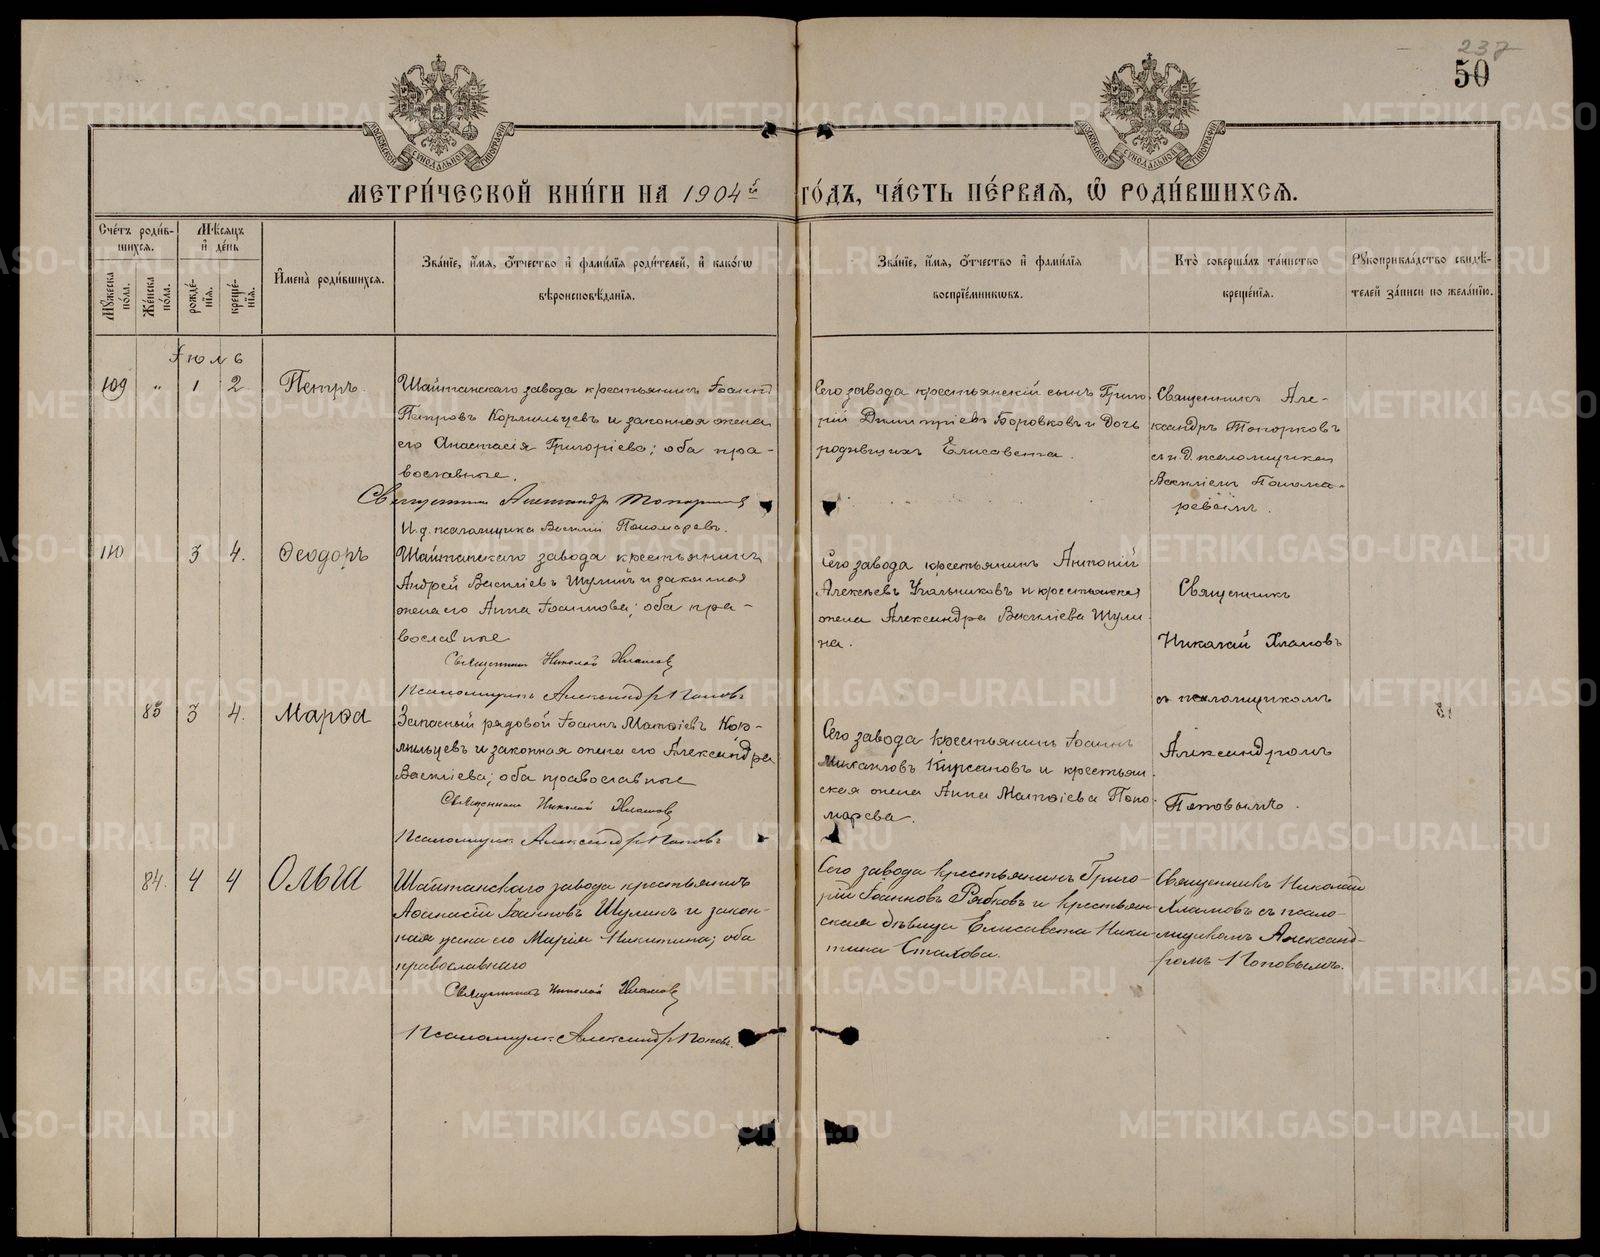 237
50
МОСКОВСКОЙ СѴНОДАЛЬНОЙ ТИПОГРАФІИ
МОСКОВСКОЙ СѴНОДАЛЬНОЙ ТИПОГРАФІИ
МЕТРИ́ЧЕСКОЙ КНИ́ГИ НА 1904й ГО́ДЪ, ЧА́СТЬ ПЕ́РВАЯ, Ѡ РОДИ́ВШИХСЯ.
Сче́тъ роди́в-
шихся.
Мꙋжеска по́ла.
Же́нска по́ла.
Мѣ́сяцъ и́ де́нь
рожде́-
нїя.
креще́-
нїя.
И́мена̀ роди́вшихся.
Зва́нїе, и́мя, о́тчество и́ фами́лїя роди́телей, и́ како́гѡ
вѣроисповѣ́данїя.
Зва́нїе, и́мя, о́тчество и́ фами́лїя
воспрїе́мникѡвъ.
Кто̀ соверша́лъ та́инство
креще́нїя.
Рꙋкоприкла́дство свидѣ́-
телей за́писи по жела́нїю.
Іюль
109 " 1 2 Петръ.
Шайтанскаго завода крестьянинъ Іоаннъ
Петровъ Кормильцевъ и законная жена
его Анастасія Григоріева; оба пра-
вославные.
Священникъ Александръ Топорковъ
И.д. псаломщика Василій Пономаревъ.
Сего завода крестьянскій сынъ Григо-
рій Димитріевъ Боровковъ и дочь
родившихъ Елисавета.
Священникъ Але-
ксандръ Топорковъ
съ и.д. псаломщика
Василіемъ Понома-
ревымъ.
110 3 4. Ѳеодоръ
Шайтанскаго завода крестьянинъ
Андрей Василіевъ Шулинъ и законная
жена его Анна Іоаннова; оба пра-
вославные
Священникъ Николай Хламовъ
Псаломщикъ Александръ Поповъ
Сего завода крестьянинъ Антоній
Алексѣевъ Угольниковъ и крестьянская
жена Александра Василіева Шули-
на.
Священникъ
Николай Хламовъ
съ псаломщикомъ
Александромъ
Поповымъ.
83 3 4. Марѳа
Запасный рядовой Іоаннъ Матѳіевъ Кор-
мильцевъ и законная жена его Александра
Василіева; оба православные
Священникъ Николай Хламовъ
Псаломщикъ Александръ Поповъ
Сего завода крестьянинъ Іоаннъ
Михаиловъ Кирсановъ и крестьян-
ская жена Анна Матѳіева Поно-
марева.
84. 4 4 Ольга
Шайтанскаго завода крестьянинъ
Аѳанасій Іоанновъ Шулинъ и закон-
ная жена его Марія Никитина; оба
православнаго
Священникъ Николай Хламовъ
Псаломщикъ Александръ Поповъ.
Сего завода крестьянинъ Григо-
рій Іоанновъ Рябковъ и крестьян-
ская дѣвица Елисавета Ники-
тина Стахова.
Священникъ Николай
Хламовъ съ псало-
мщикомъ Александ-
ромъ Поповымъ.
METRIKI.GASO-URAL.RU